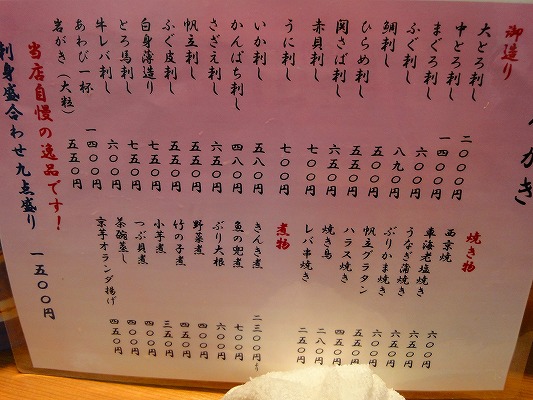 かき
御造り
大とろ刺し 二〇〇〇円
中とろ刺し 一四〇〇円
まぐろ刺し 六〇〇円
ふぐ刺し 八九〇円
鯛刺し 五五〇円
ひらめ刺し 五五〇円
関さば刺し 六五〇円
赤貝刺し 七〇〇円
うに刺し 七〇〇円
いか刺し 五八〇円
かんぱち刺し 四八〇円
さざえ刺し 六五〇円
帆立刺し 五五〇円
ふぐ皮刺し 五五〇円
白身薄造り 七五〇円
とろ馬刺し 七五〇円
牛レバ刺し 六〇〇円
あわび一杯 一四〇〇円
岩がき（大粒） 五五〇円
焼き物
西京焼 六〇〇円
車海老塩焼き 六五〇円
うなぎ蒲焼き 六五〇円
ぶりかま焼き 六〇〇円
帆立グラタン 五五〇円
ハラス焼き 四五〇円
焼き鳥 二八〇円
レバ串焼き 二五〇円
煮物
きんき煮 二三〇〇円より
魚の兜煮 七〇〇円
ぶり大根 六〇〇円
野菜煮 四〇〇円
竹の子煮 四五〇円
小芋煮 三五〇円
つぶ貝煮 四〇〇円
茶碗蒸し 四五〇円
京芋オランダ揚げ 四五〇円
当店自慢の逸品です！
刺身盛合わせ九点盛り 一五〇〇円